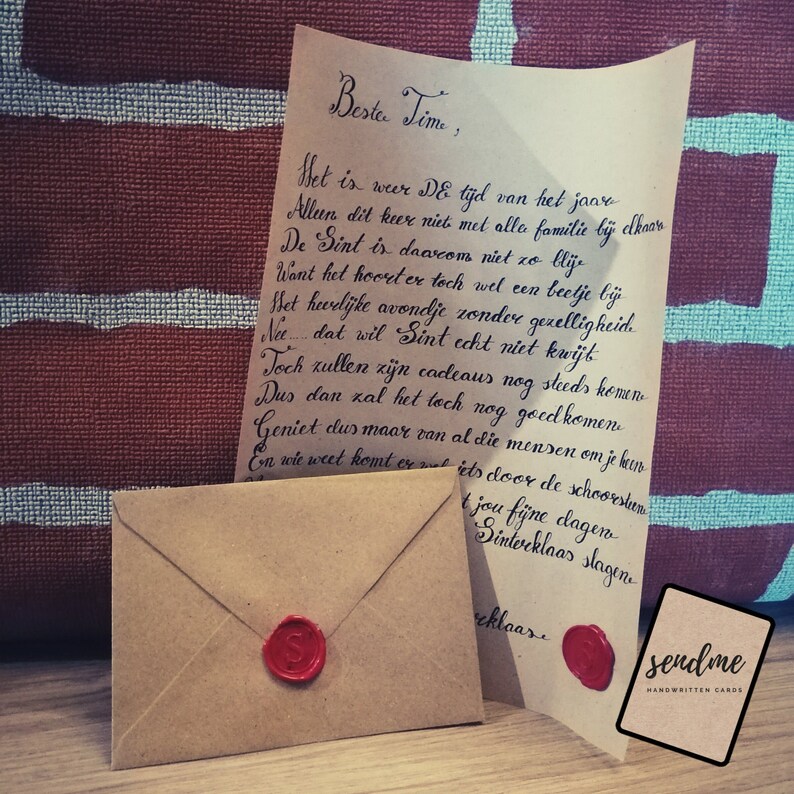 Beste Time,
Het is weer DE tijd van het jaar
Alleen dit keer niet met alle familie bij elkaar
De Sint is daarom niet zo blij
Want het hoort er toch wel een beetje bij
Het heerlijke avondje zonder gezelligheid
Nee..... dat wil Sint echt niet kwijt
Toch zullen zijn cadeaus nog steeds komen
Dus dan zal het toch nog goedkomen
Geniet dus maar van al die mensen om je heen
En wie weet komt er wel iets door de schoorsteen
jou fijne dagen
Sinterklaas slagen
rklaas
S
S
sendme
HANDWRITTEN CARDS